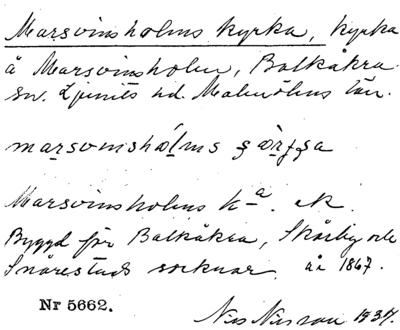 Marsvinsholms kyrka, kyrka
å Marsvinsholm, Balkåkra
sn. Ljunits hd. Malmöhus län.
Marsvinsholms k-a. ek
Byggd för Balkåkra, Skårby och
Snårestads socknar år 1867.
Nr 5662.
Nils Nilsson 1934.